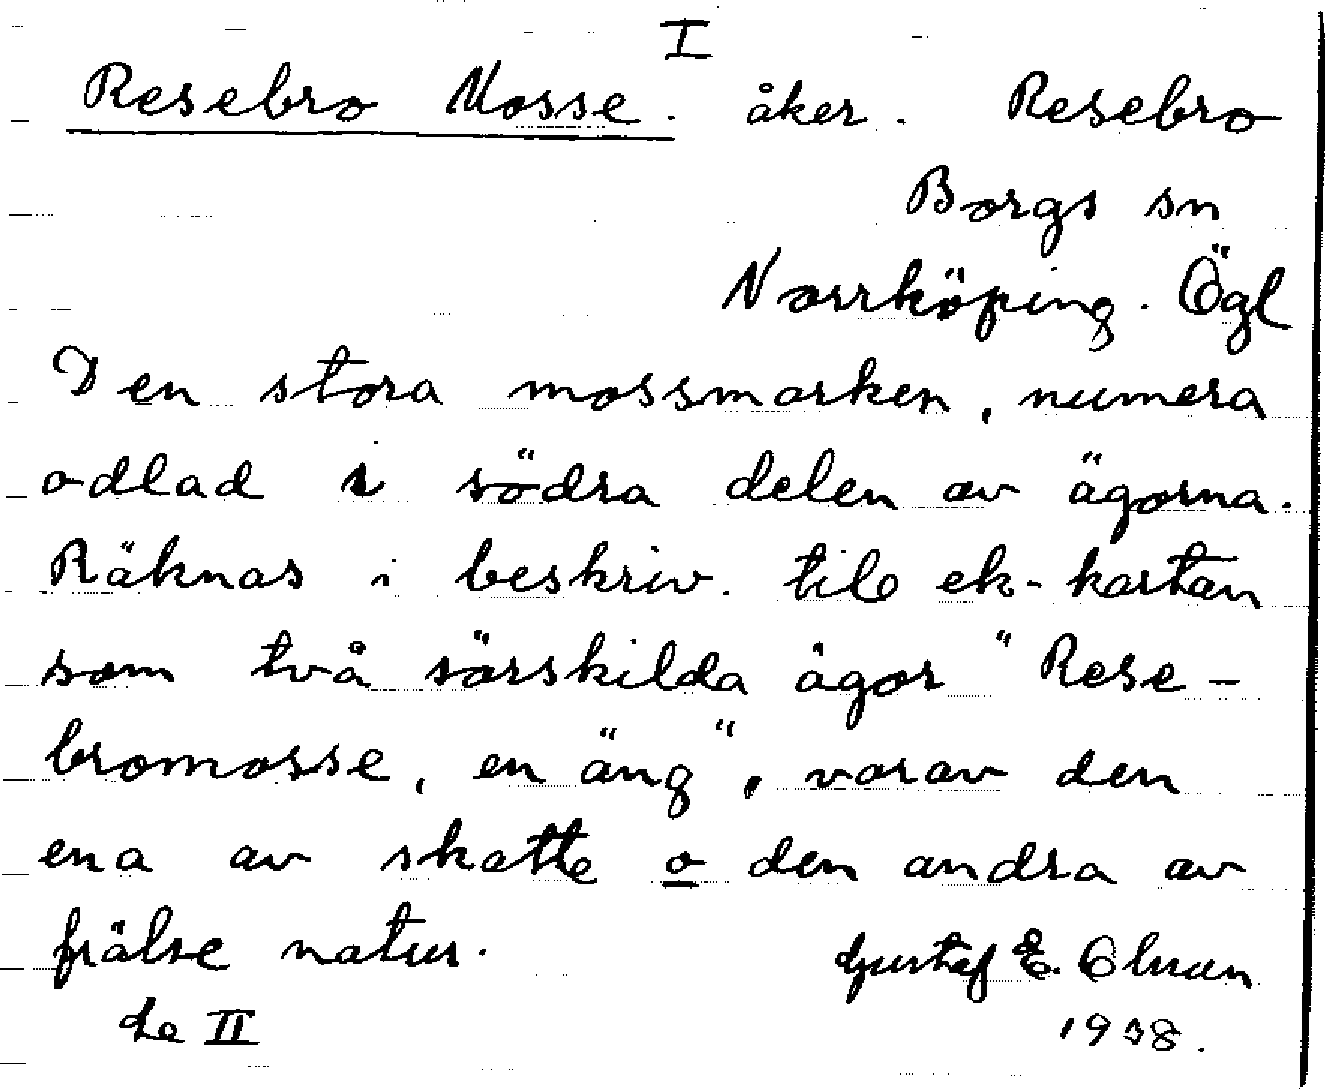 I
Resebro Mosse. åker. Resebro
Borgs sn
Norrköping. Ögl
Den stora mossmarken, numera
odlad i södra delen av ägorna.
Räknas i beskriv. till ek-kartan
som två särskilda ägor "Rese-
bromosse, en äng", varav den
ena av skatte o den andra av
frälse natur.
Gustaf E. Olsson
Se II
1938.